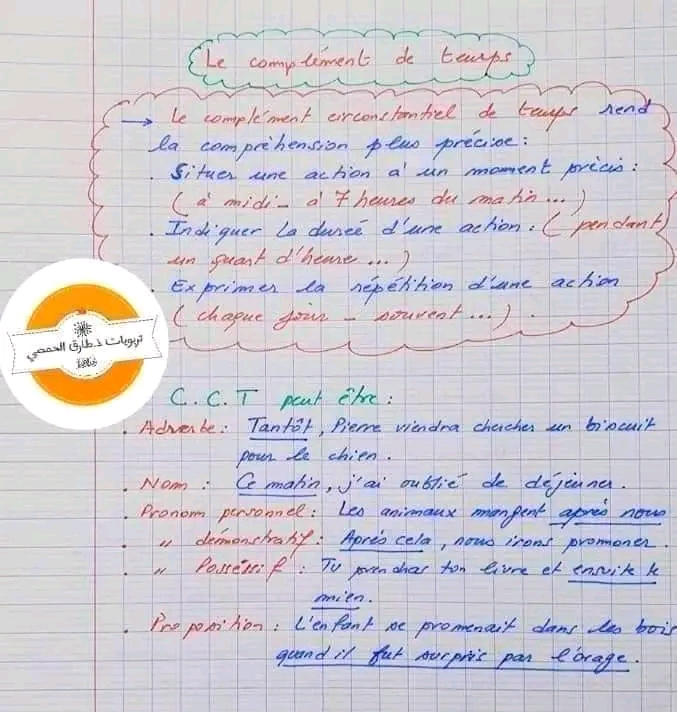 Le complément de temps
→ Le complément circonstantiel de temps rend
la compréhension plus précise :
. Situer une action à un moment précis :
( à midi - à 7 heures du matin ... )
. Indiquer la dureé d'une action : ( pendant
un quart d'heure ... )
. Exprimer la répétition d'une action
( chaque jour - souvent ... )
تربويات ذ.طارق الحمصي
C.C.T peut être :
. Adverbe : Tantôt, Pierre viendra chercher un biscuit
pour le chien .
. Nom : Ce matin, j'ai oublié de déjeuner .
. Pronom personnel : Les animaux mangent après nous
. " démonstratif : Après cela, nous irons promoner .
. " Possessif : Tu prendras ton livre et ensuite le
mien .
. Proposition : L'enfant se promenait dans les bois
quand il fut surpris par l'orage .